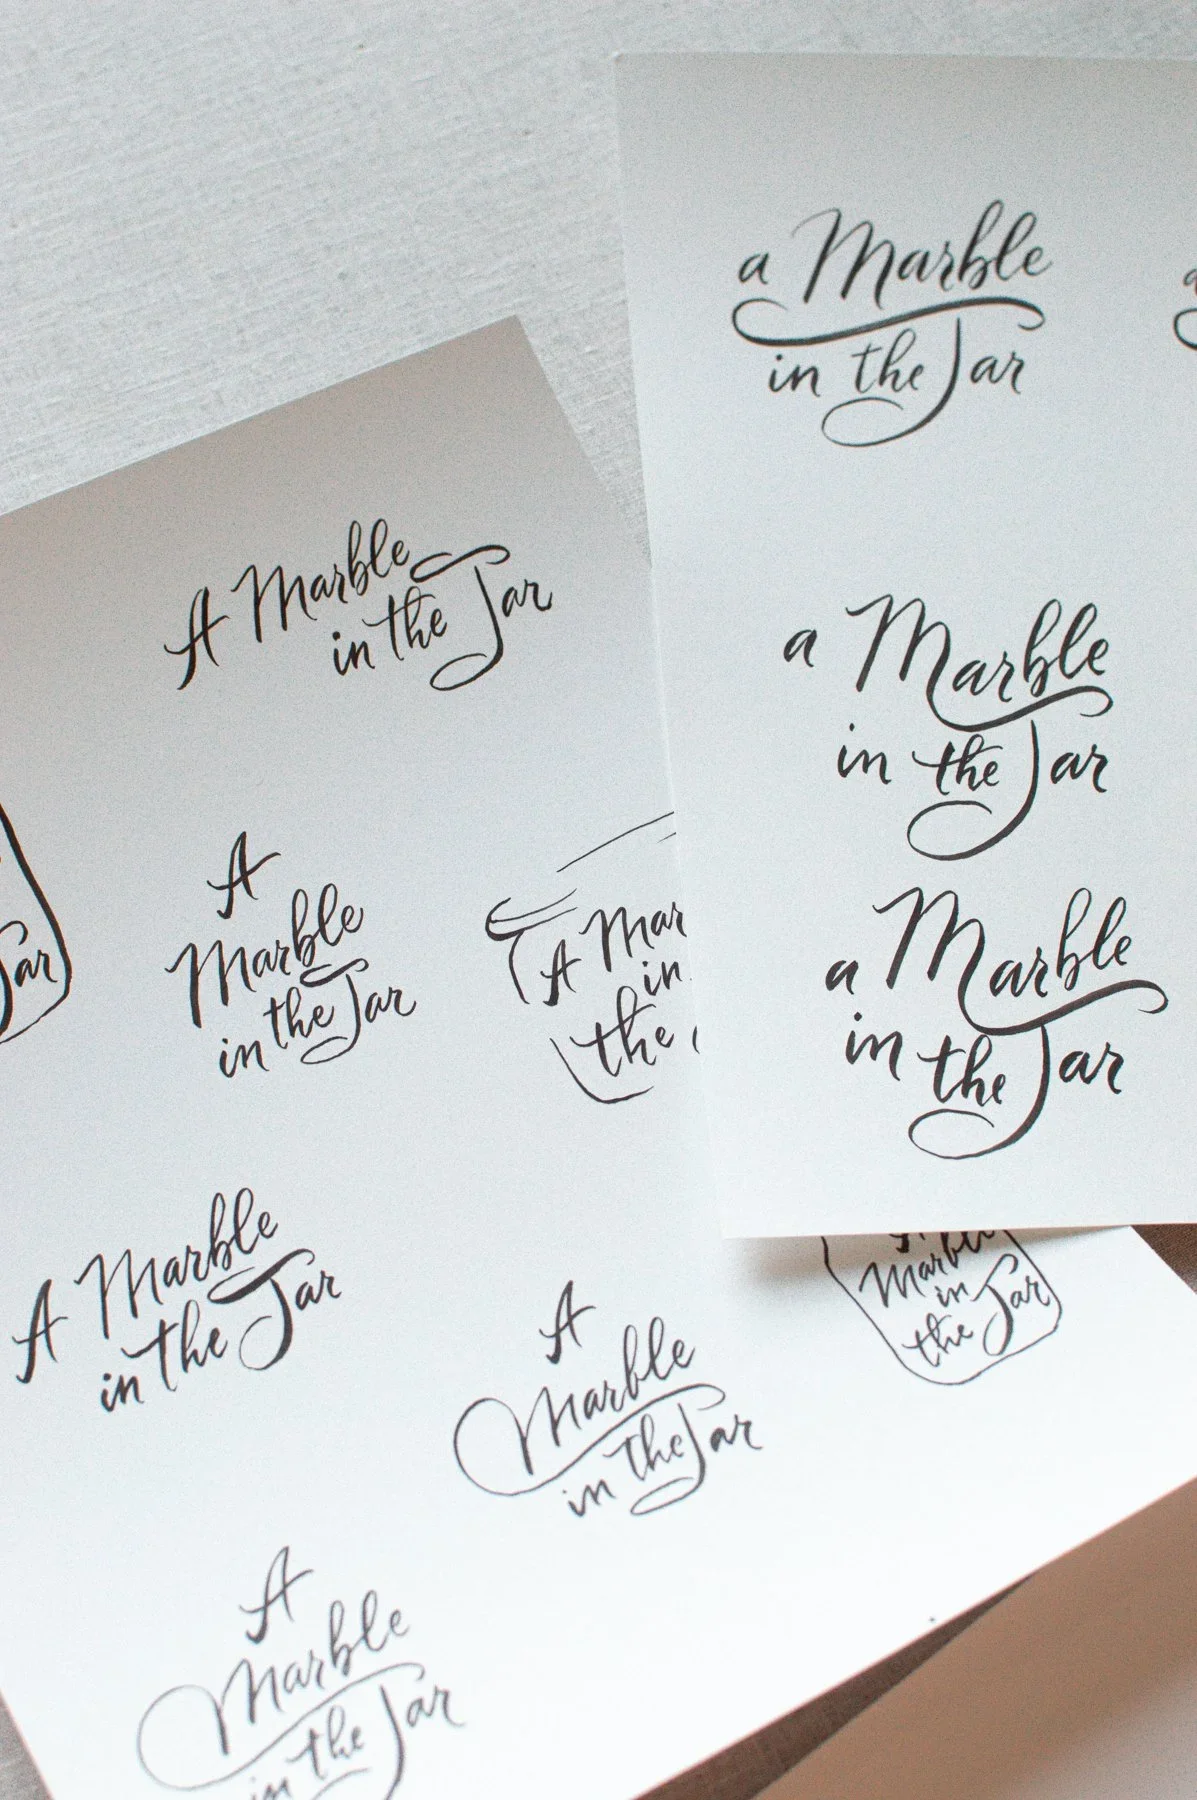 a Marble
in the Jar
a Marble
in the Jar
a Marble
in the Jar
A Marble
in the Jar
Jar
A
Marble
in the Jar
A Mar
in
the
A Marble
in the Jar
A
Marble
in the Jar
Marble
in
the Jar
A
Marble
in the Jar